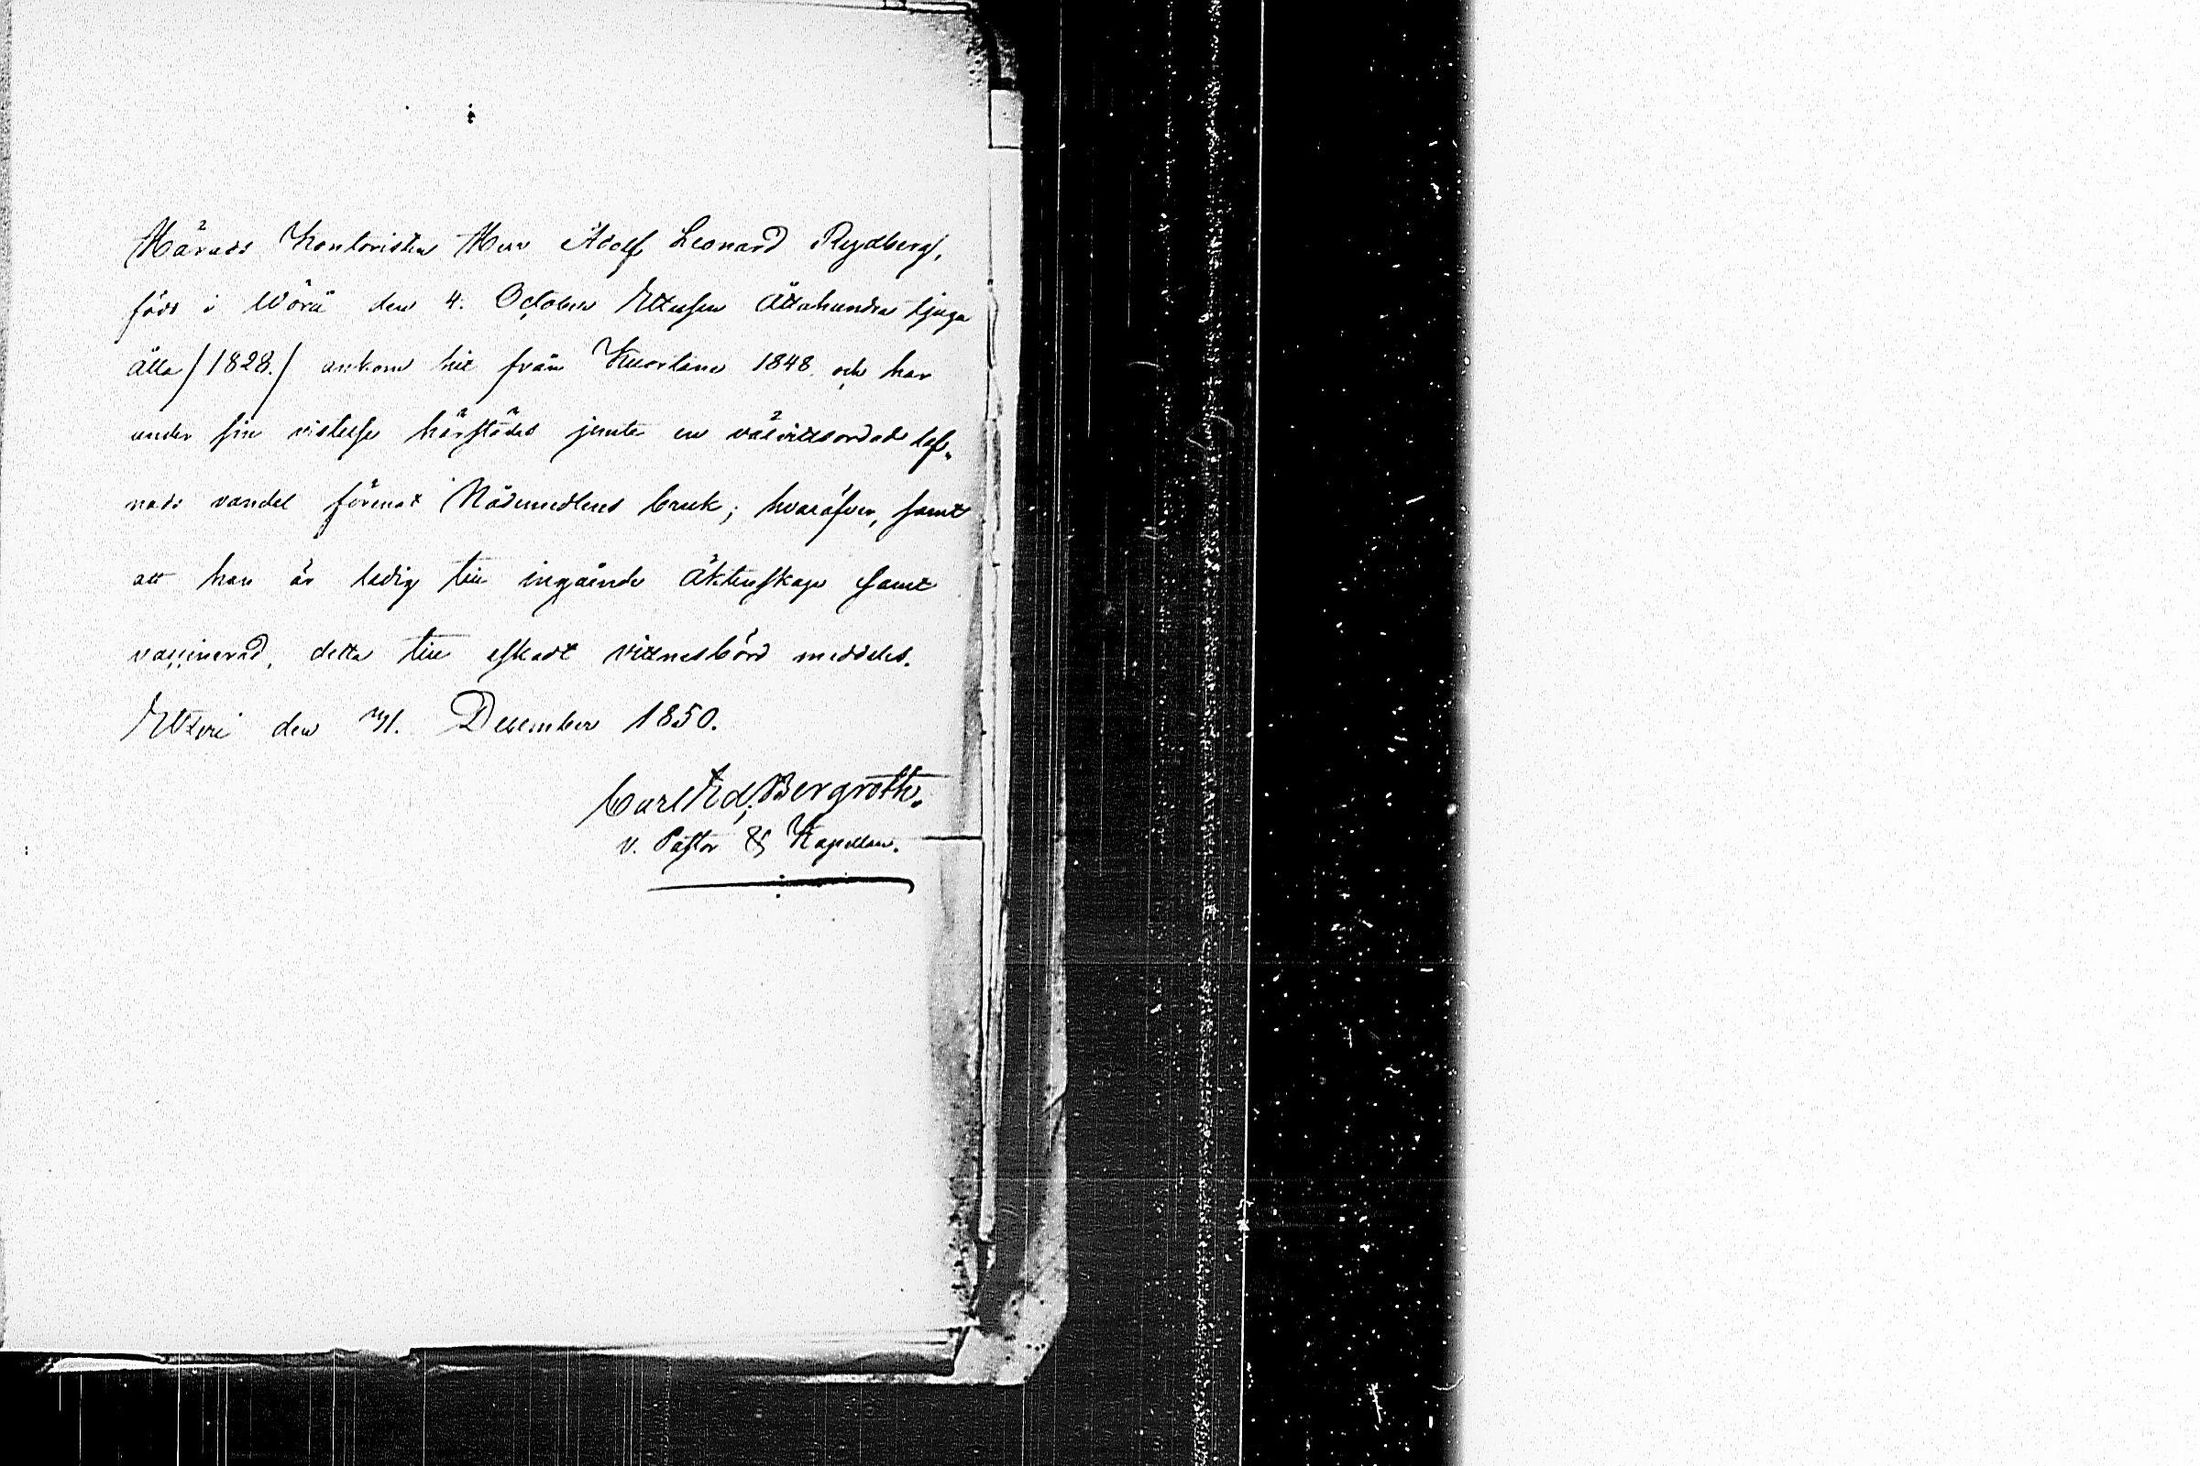 Härads Kontoristen Herr Adolf Leonard Rydberg,
född i Wörå den 4. October Ettusen Åttahundra tjugu
åtta /1828./ ankom hit från Kuortane 1848. och har
under sin vistelse härstädes jemte en välvittsordad lef„
nads vandel förenat Nådemedlens bruk; hvaröfver, samt
att han är ledig till ingående Äktenskap samt
vaccinerad, detta till äskadt vittnesbörd meddelas.
Etseri den 31. December 1850.
Carl Ed. Bergroth.
v. Pastor & Kapellan.